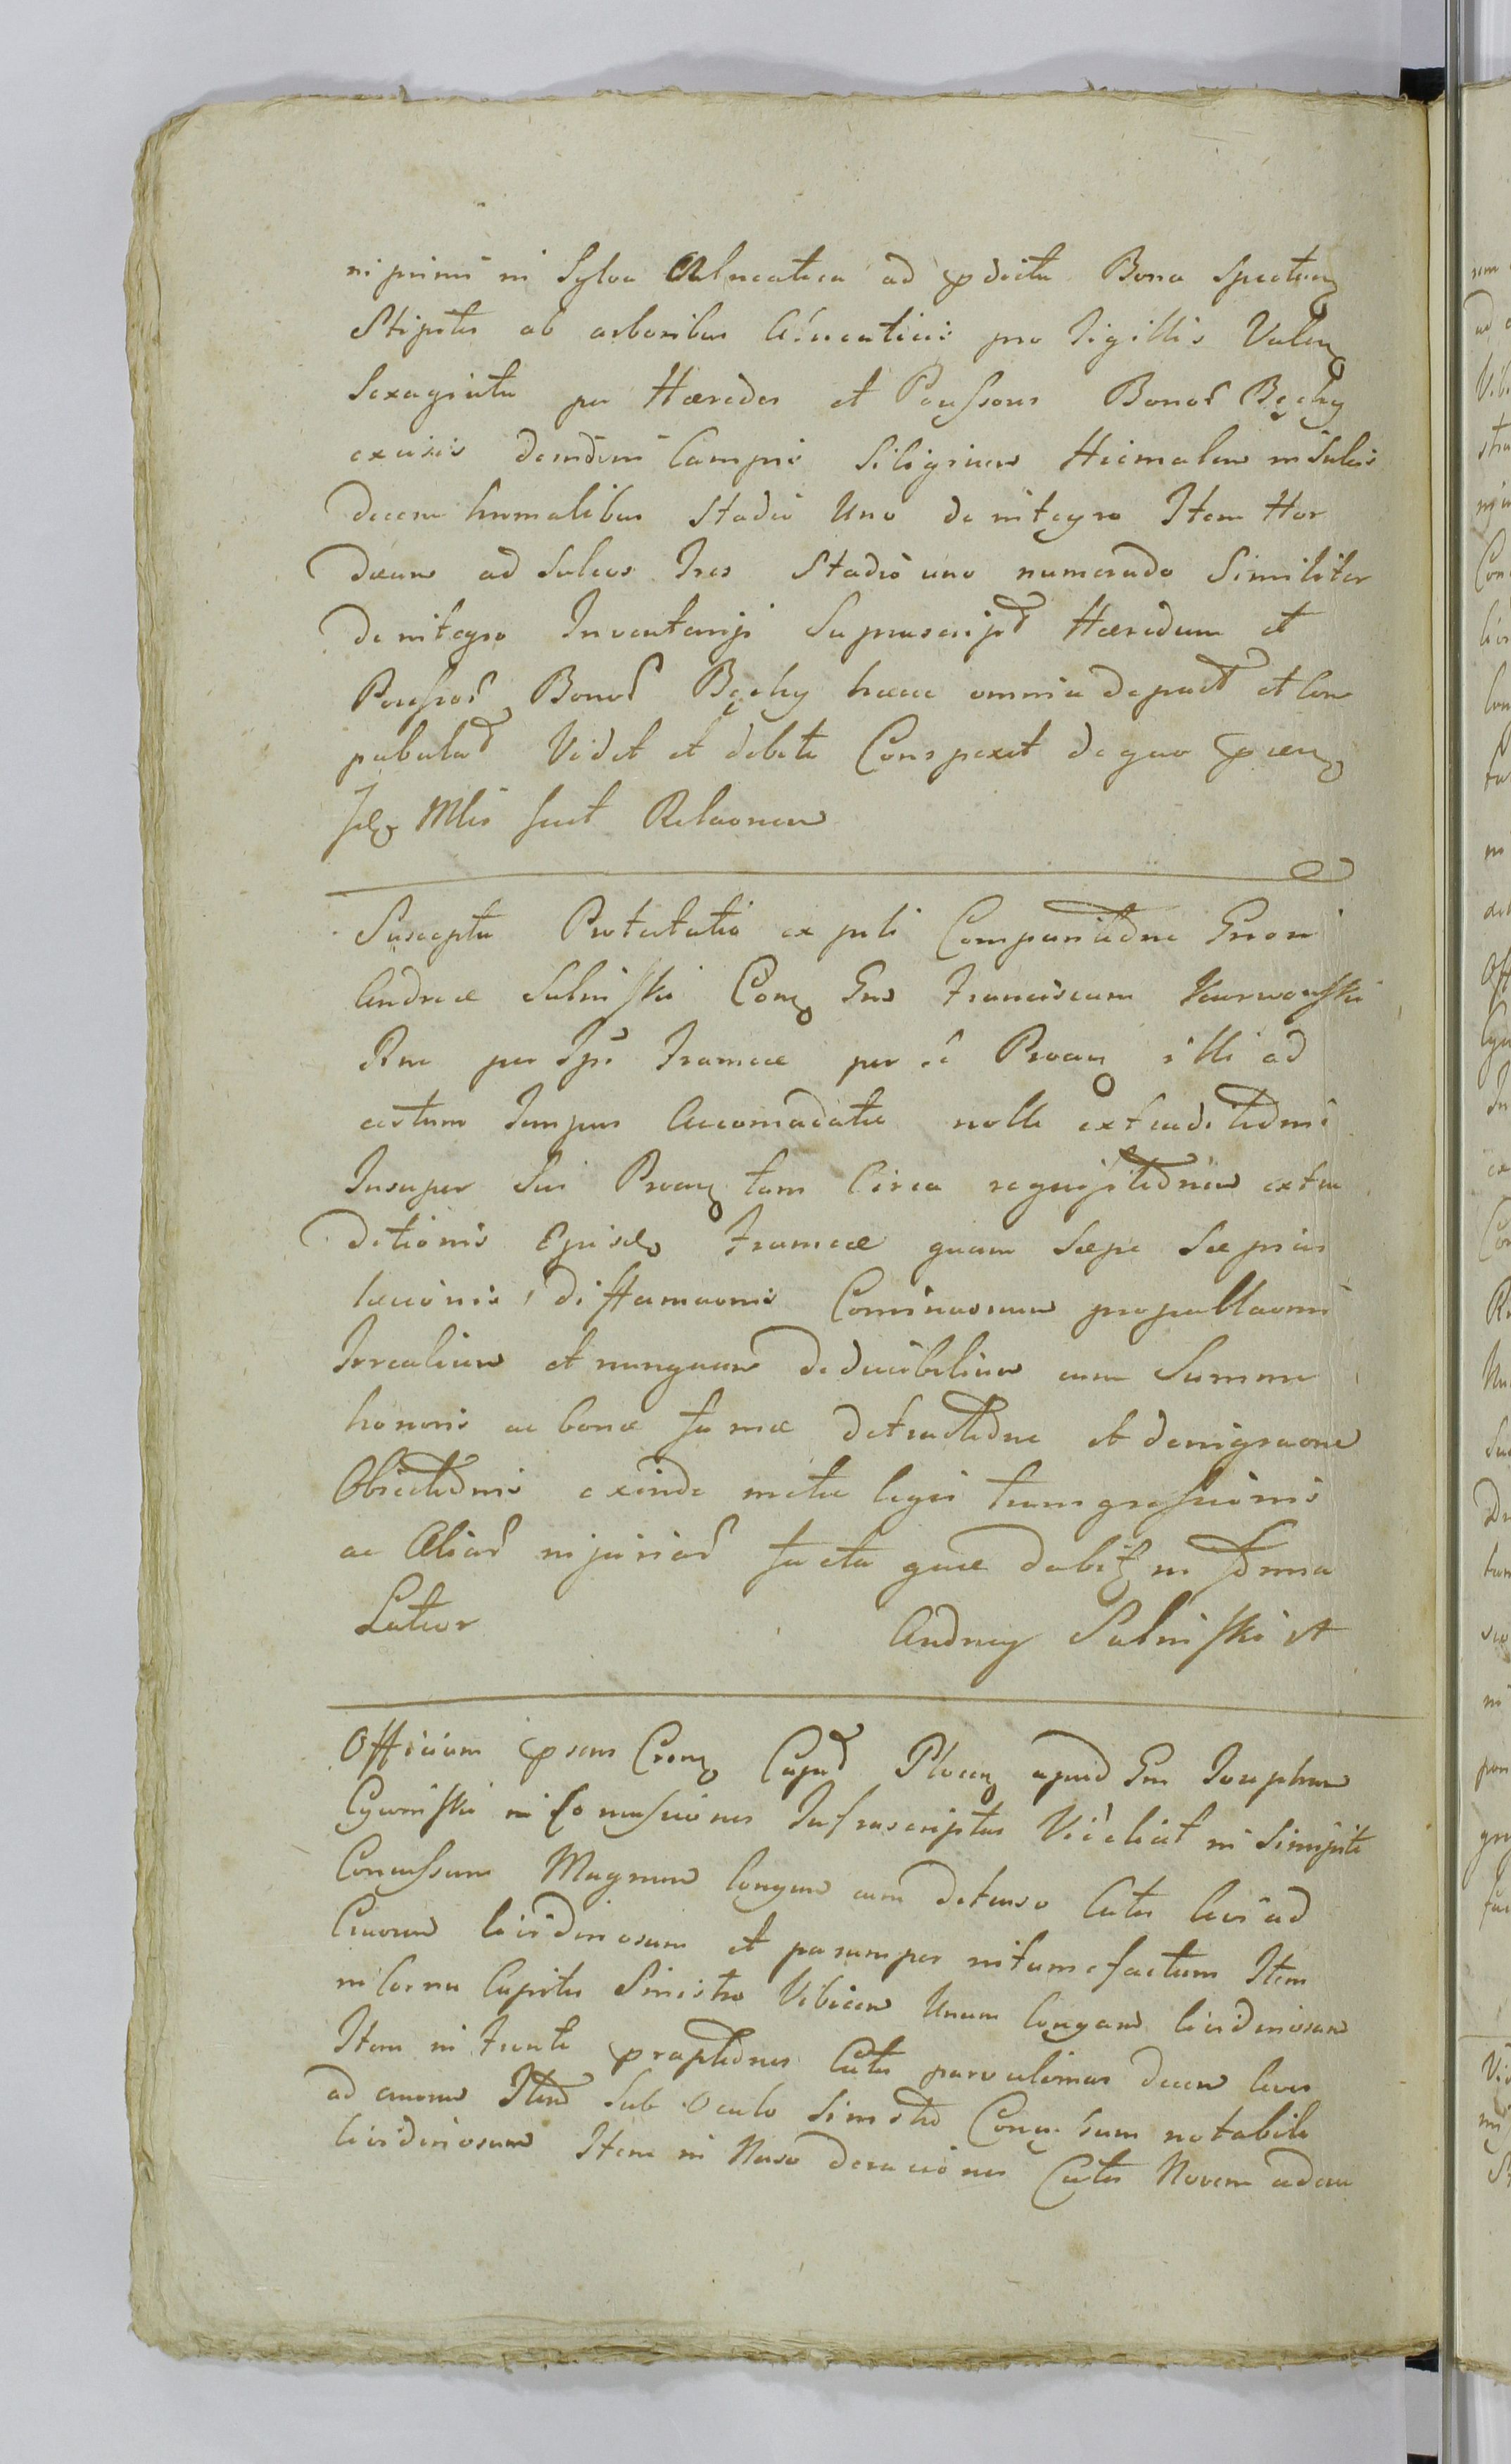 in primis in Sylva Alneatica ad pdicta Bona Spectan
Stipites ab arboribus Alneaticis pro Tigillis Valen
Sexaginta per Haeredes et Poussores Bonor Bęchy
excisis deindem Campis Siliginem Hiemalem in Sulcis
decem humalibus Stadio Uno de integro Item Hor
deum ad Sulcos Tres Stadio uno numerado Similiter
de integro Inventarij Suprascript Haeredum et
Poussor Bonor Bęchy haec omnia depact et con
pabulat Vidit et debite Conspexit de quo pãen
Ide Mlis fecit Relaonem
Suscepta Protestatio ex pnti Comparitione Gnosi
Andreae Sulinski Con Gns Franciscum Karwowski
Rne per Ips Frameae per se Procan illi ad
certum tempus Accomodatae nolle extraditionis
Insuper Sui Procan tam Circa requisitionem extra
ditionis Ejusdem Frameae quam Saepe Saepius
laesionis, diffamaonis Cominaonum propallaonis
Irrealium et nunquam deducibilium cum Summa
honoris ac bonae famae detractione et denigraone
Obiectionis exinde metae legis transgressionis
ac Aliar injuriar facta quae dabit in forma
Latior Andrzey Sulinski A
Officium psens Cron Capit Plocen apud Gn Josephum
Cywinski in Comissiones Infrascriptas Videlicet in Sincipite
Concussum Magnum longum cum detenso Cutis levi ad
Cruorem lividinosum et parumper intumefactum Item
in Cornu Capitis Sinistro Vibicem Unam longam lividinosam
Item in Fronte praptiones Cutis parvulimas decem leves
ad cruorem Item Sub Oculo Sinistro Concussum notabile
lividinosum Item in Naso deraciones Cutis Novem adcru